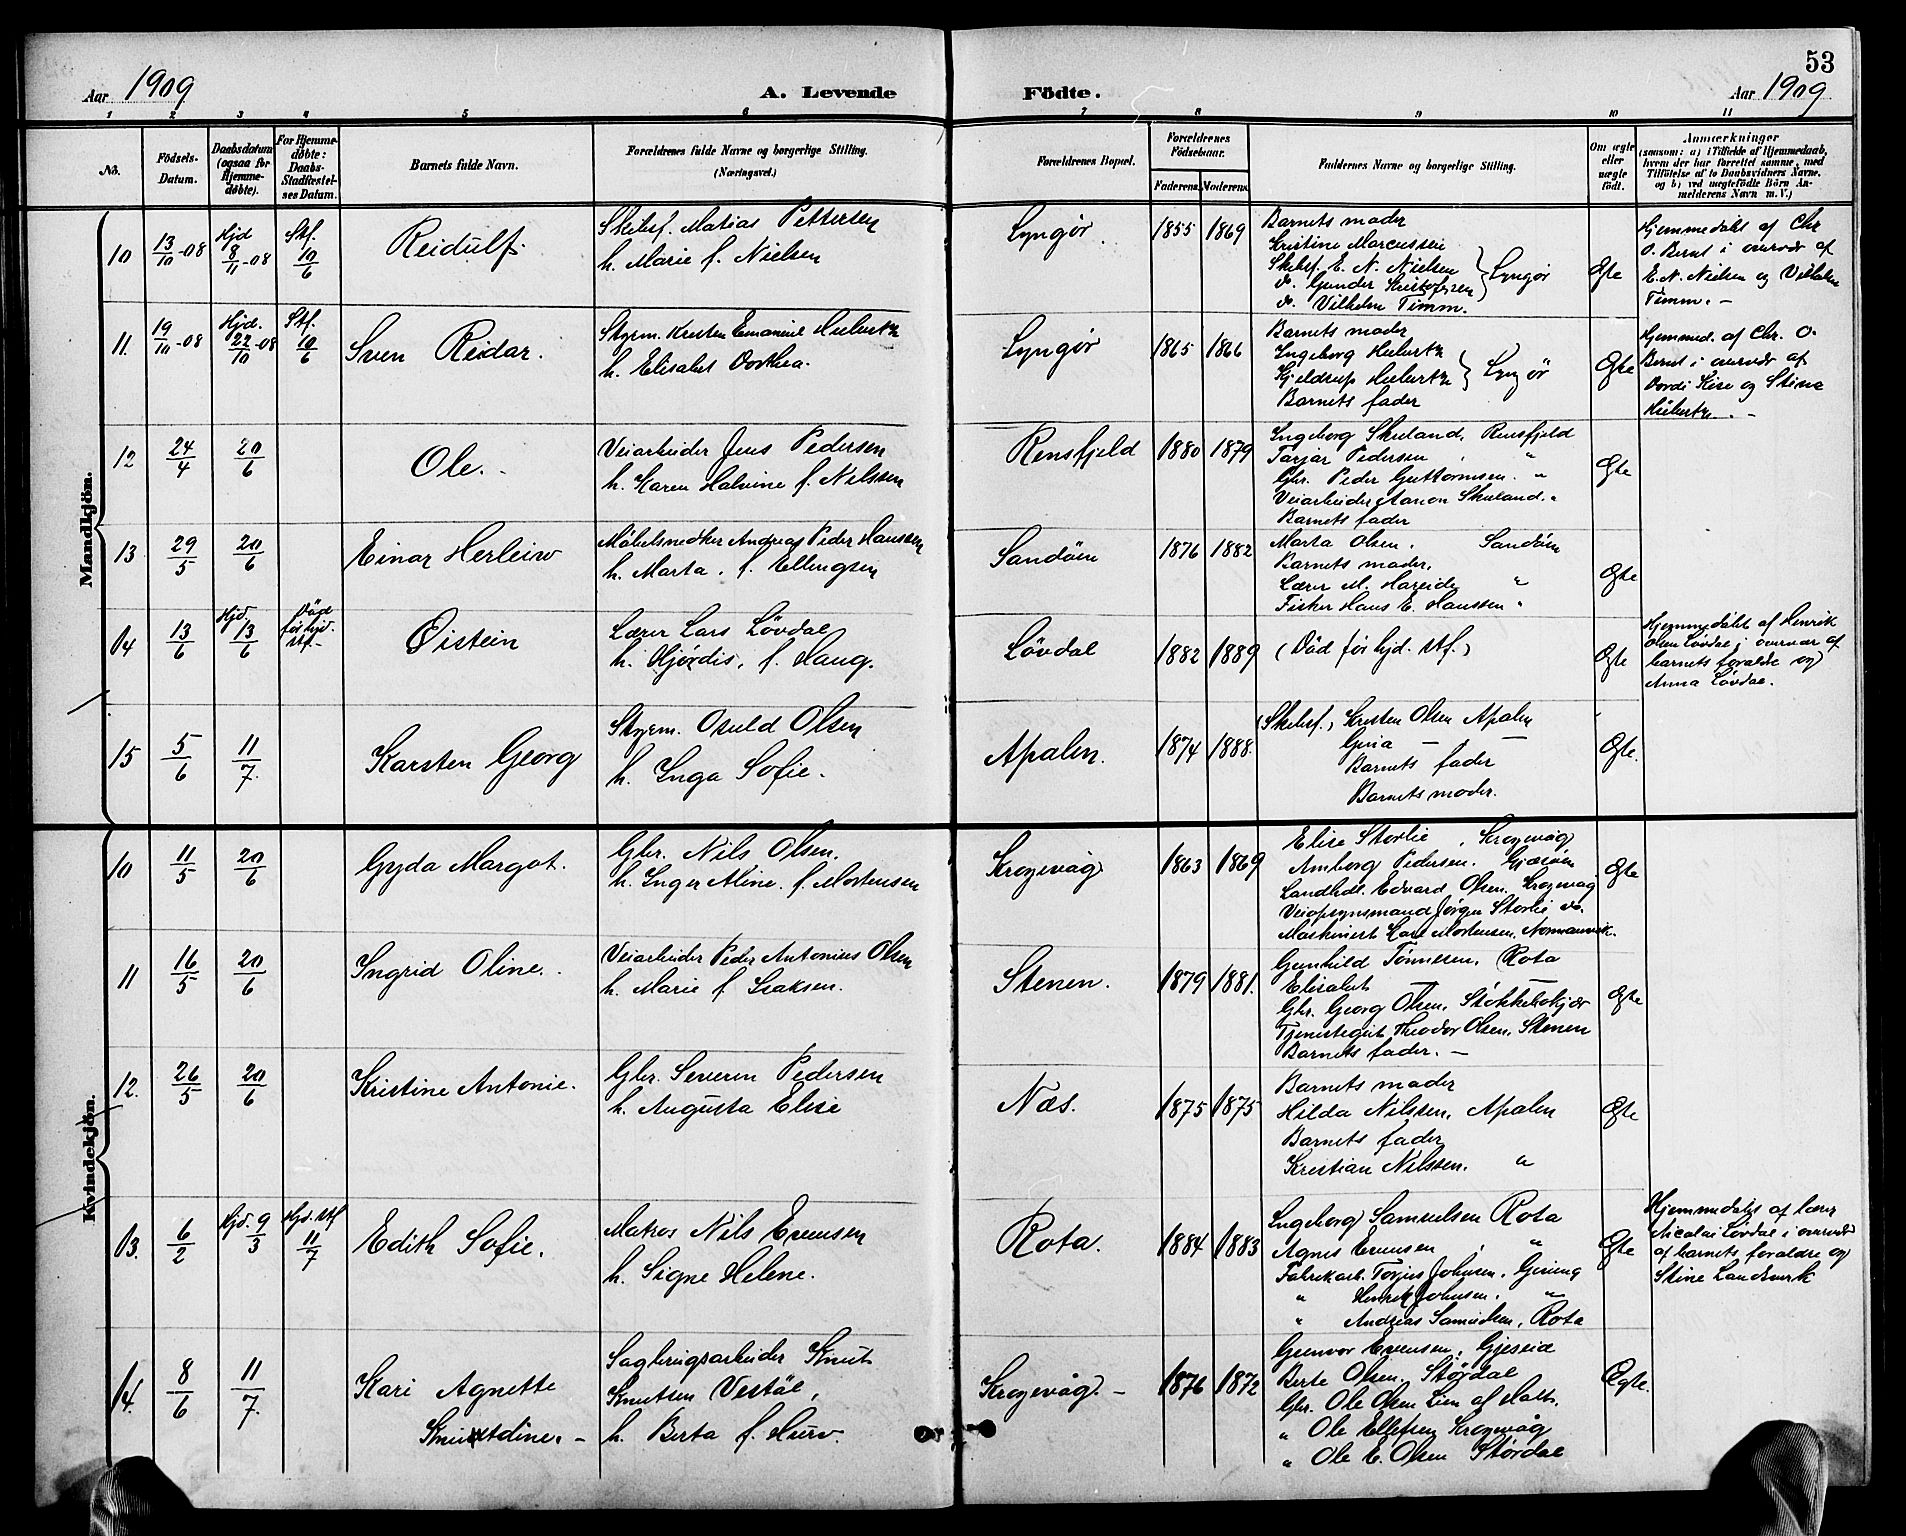 53
Aar 1909
A. Levende
Födte.
Aar 1909
1 2 3 4 5 6 7 8 9 10 11
No.
Födsels-Datum.
Daabsdatum (ogsaa for Hjemme-døbte).
For Hjemme-døbte: Daabs-Stadfæstel-ses Datum.
Barnets fulde Navn.
Forældrenes fulde Navne og borgerlige Stilling.
(Næringsvei.)
Forældrenes Bopæl.
Forældrenes Födselsaar.
Faderens. Moderens.
Faddernes Navne og borgerlige Stilling.
Om ægte eller uægte födt.
Anmærkninger
(saasom: a) i Tilfælde af Hjemmedaab,
hvem der har forrettet samme, med
Tilföielse af to Daabsvidners Navne.
og b) ved uægtefödte Börn An-
melderens Navn m. V.)
Mandkjön.
10 13/10-08 Hjd 8/11-08 Stf. 10/6
Reidulf.
Skibsf. Matias Pettersen
h. Marie f. Nielsen
Lyngør.
1855 1869
Barnets moder
Kristine Marcussen
Skibsf. E. N. Nielsen
do. Gunder Kristofersen
do. Vilhelm Timm.
Lyngør
Ægte
Hjemmedøbt af Chr
O. Bernt i overvær af
E. N. Nielsen og Vilhelm
Timm. -
11. 19/10-08 Hjd. 22/10-08 Stf. 10/6
Sven Reidar.
Styrm. Kristen Emanuel
h. Elisabet Dorthea.
Lyngør
1865 1866
Barnets moder
Ingeborg
Kjeldrup
Barnets fader
Lyngør
Ægte
Hjemmed. af Chr. O.
Bernt i overvær af
og Stina
12 24/4 20/6
Ole.
Veiarbeider Jens Pedersen
h. Karen Halvine f. Nilssen
Rensfjeld
1880 1879
Ingeborg Skuland, Rensfjeld
Tarjar Pedersen "
Gbr. Peder Guttormsen. "
Veiarbeider Aanon Skuland. "
Barnets fader
Ægte
13 29/5 20/6
Einar Herleiw
Møbelsnedker Andreas Peder Hanssen
h. Marta. f. Ellingsen
Sandøen
1876 1882
Marta Olsen. Sandøen
Barnets moder.
Lærer M. Hareide "
Fisker Hans E. Hanssen "
Ægte
14 13/6 Hjd. 13/6 Død før hjd. stf. -
Øistein
Lærer Lars Løvdal
h. Hjørdis, f. Haug.
Løvdal
1882 1889
(Død før hjd. stf.)
Ægte
Hjemmedøbt af Henrik
Olsen Løvdal i overvær af
barnets foræ­ldre og
Anna Løvdal.
15 5/6 11/7.
Karsten Georg
Styrm. Osuld Olsen
h. Inga Sofie.
Apalen.
1874 1888.
(Skibsf.) Kristen Olsen Apalen
Gina — —
Barnets fader
Barnets moder.
Ægte.
Kvindekjön.
10 11/5 20/6
Gyda Margot.
Gbr. Nils Olsen.
h. Inger Aline. f. Mortensen
Krogevåg
1863 1869
Elise Storlie, Krogevåg
Amborg Pedersen.
Landhdl. Edvard Olsen. Krogevåg
Veiopsynsmand Jørgen Storlie do.
Maskinist Karl Mortensen, Normannvik.
Ægte
11 16/5 20/6
Ingrid Oline.
Veiarbeider Peder Antonius Olsen
h. Marie f. Isaksen.
Stenen.
1879 1881.
Gunhild Tønnesen. Rota
Elisabet — —
Gbr. Georg Olsen, Stokkekjær
Tjenestegut Theodor Olsen, Stenen
Barnets fader. —
Ægte
12. 26/5 20/6
Kristine Antonie.
Gbr. Severin Pedersen
h. Augusta Elise
Næs.
1875 1875
Barnets moder
Hilda Nilssen, Apalen
Barnets fader
Kristian Nilssen. "
Ægte
13. 6/2 Hjd. 9/3 Hjd. Stf 11/7
Edith Sofie.
Matros Nils Evensen
h. Signe Helene.
Rota.
1884 1883
Ingeborg Samuelsen Rota
Agnes Evensen, "
Fabrikarb. Torjus Johnsen,
" Henrik Johnsen. "
" Andreas Samuelsen, Rota
Ægte
Hjemmedøbt af lærer
Nicolai Løvdal i overvær
af barnets forældre og
Stine Landverk
14. 8/6 11/7.
Kari Agnette
Knutdine. -
Sagbrugsarbeider Knut
Knutsen Vestøl,
h. Berta f.
Krogevåg. -
1876 1872
Gunvor Evensen, Gjeseid
Berte Olsen. Størdal
Gbr. Ole Olsen Lien af Holt.
" Ole Ellefsen Krogevåg
" Ole E. Olsen Størdal
Ægte.